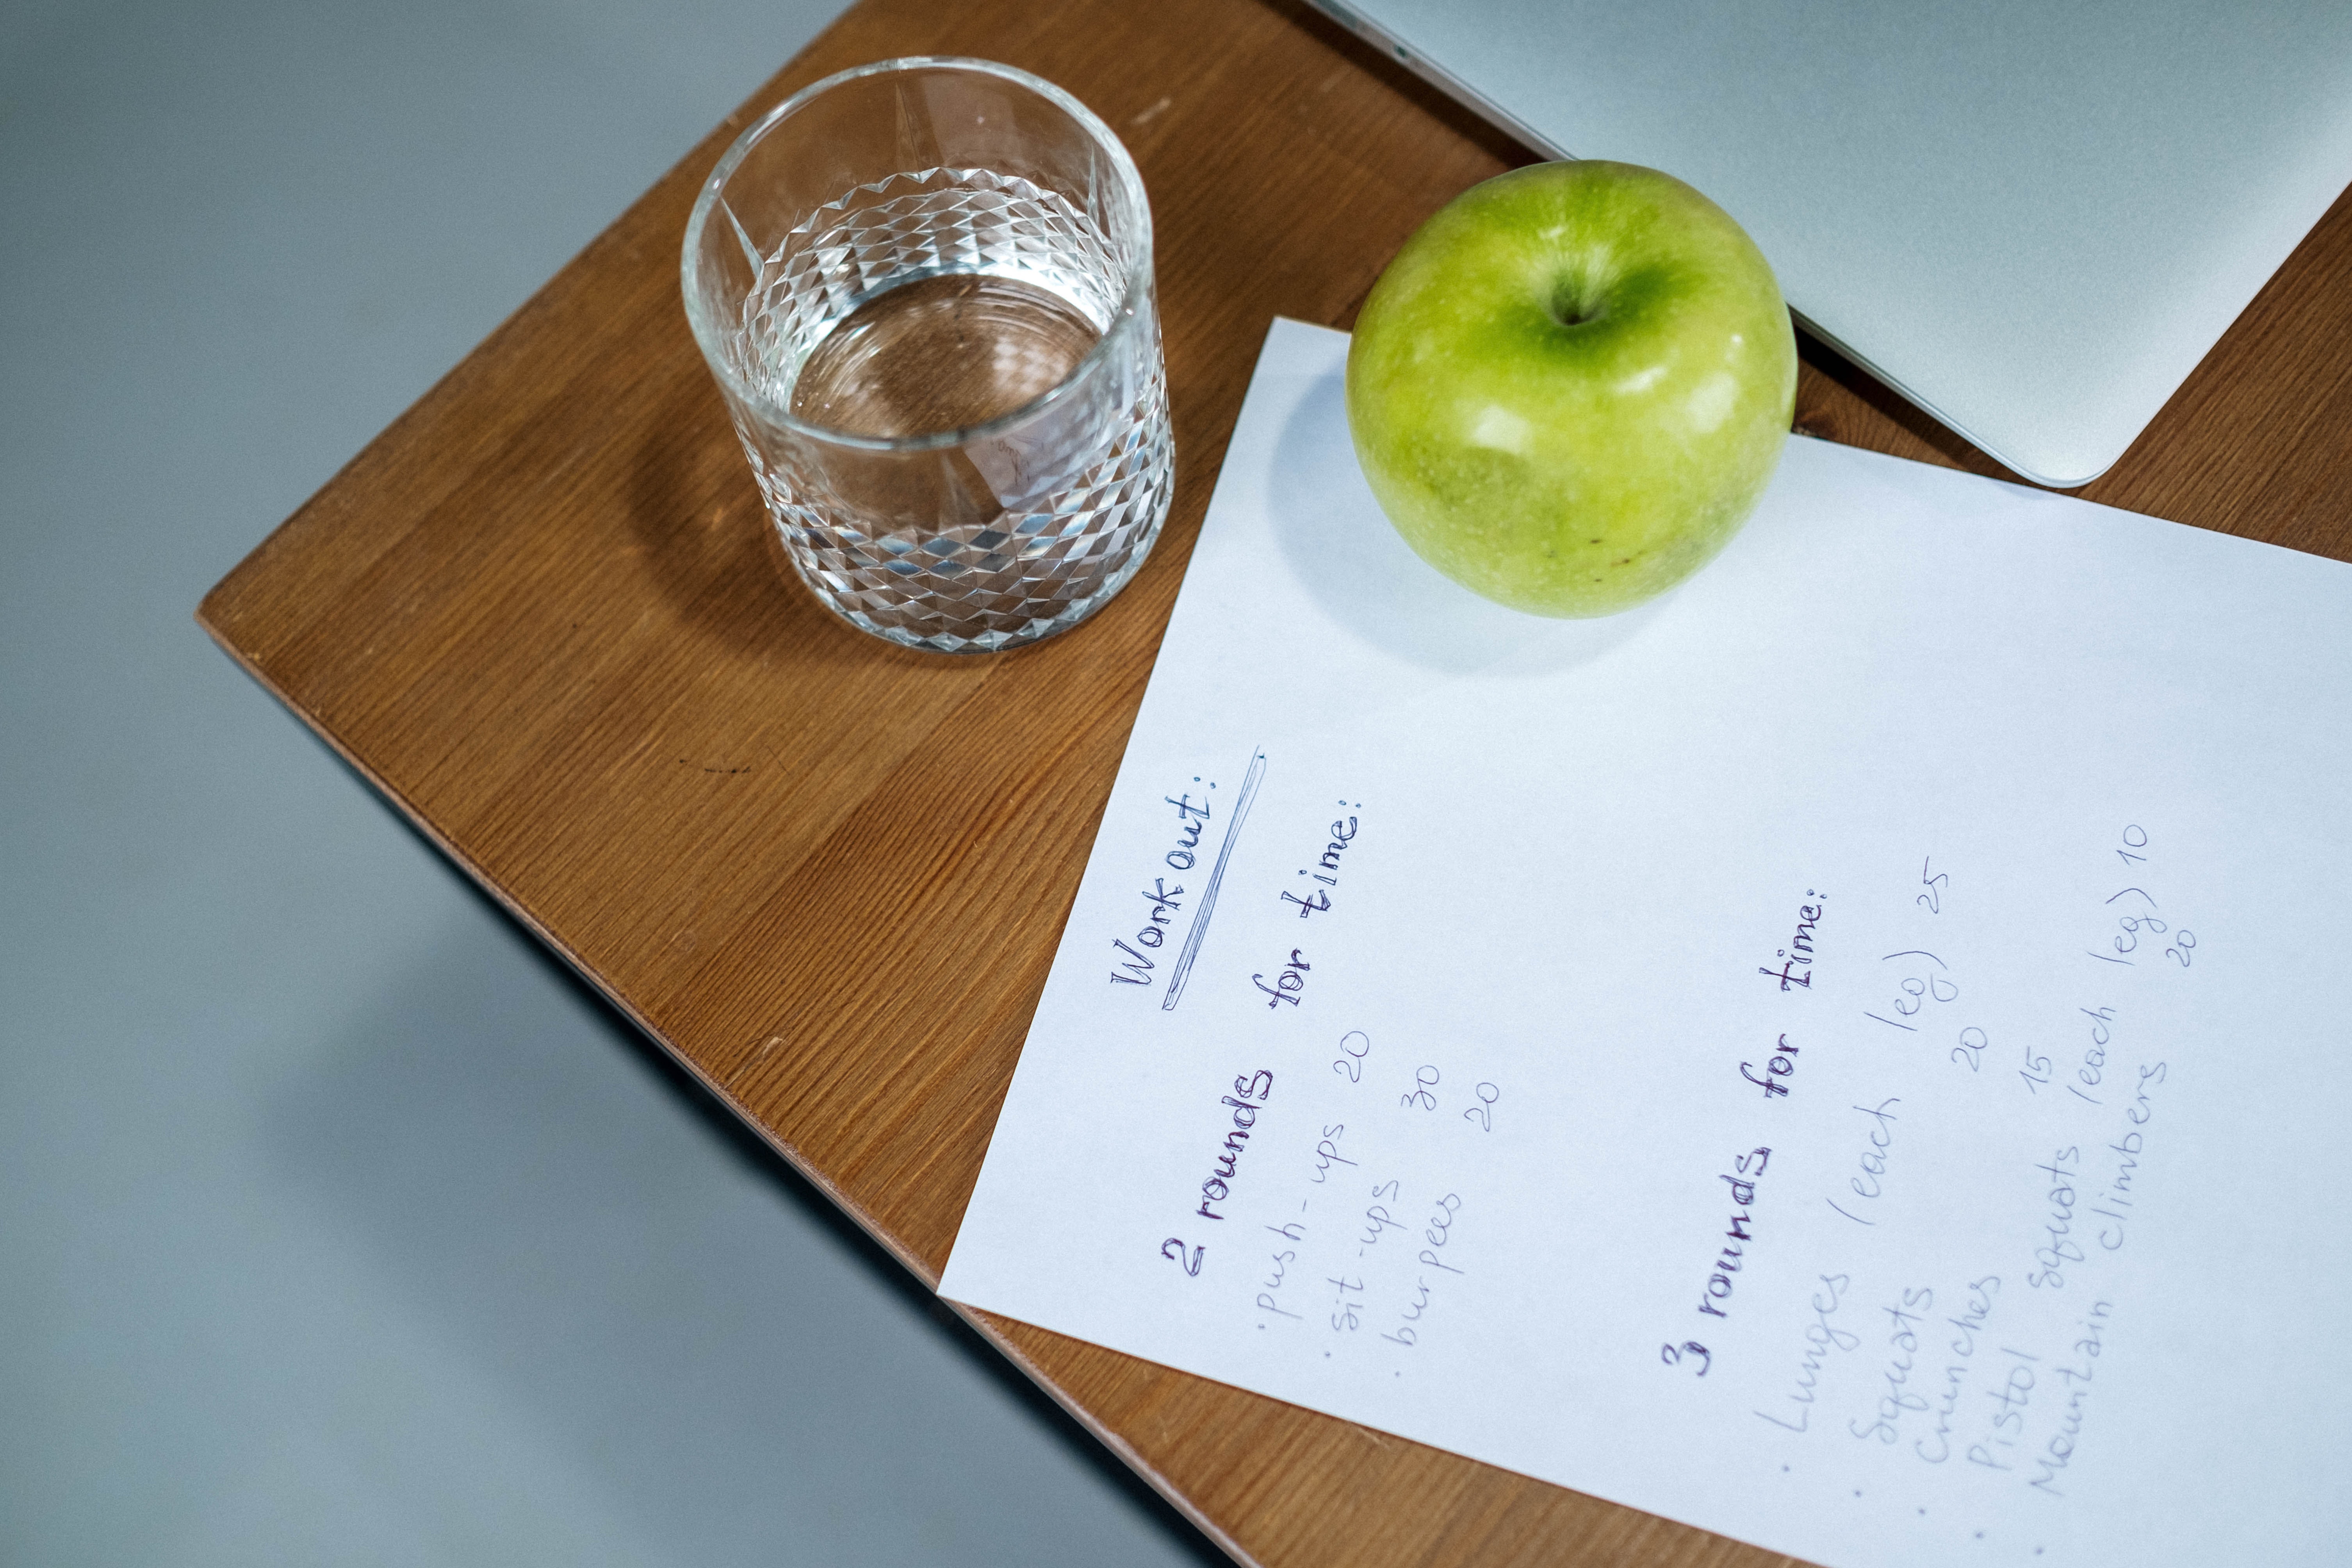 Workout:
2 rounds for time:
· push-ups 20
· sit-ups 30
· burpees 20
3 rounds for time:
· Lunges (each leg) 25
· Squats 20
· Crunches 15
· Pistol squats (each leg) 10
· Mountain climbers 20